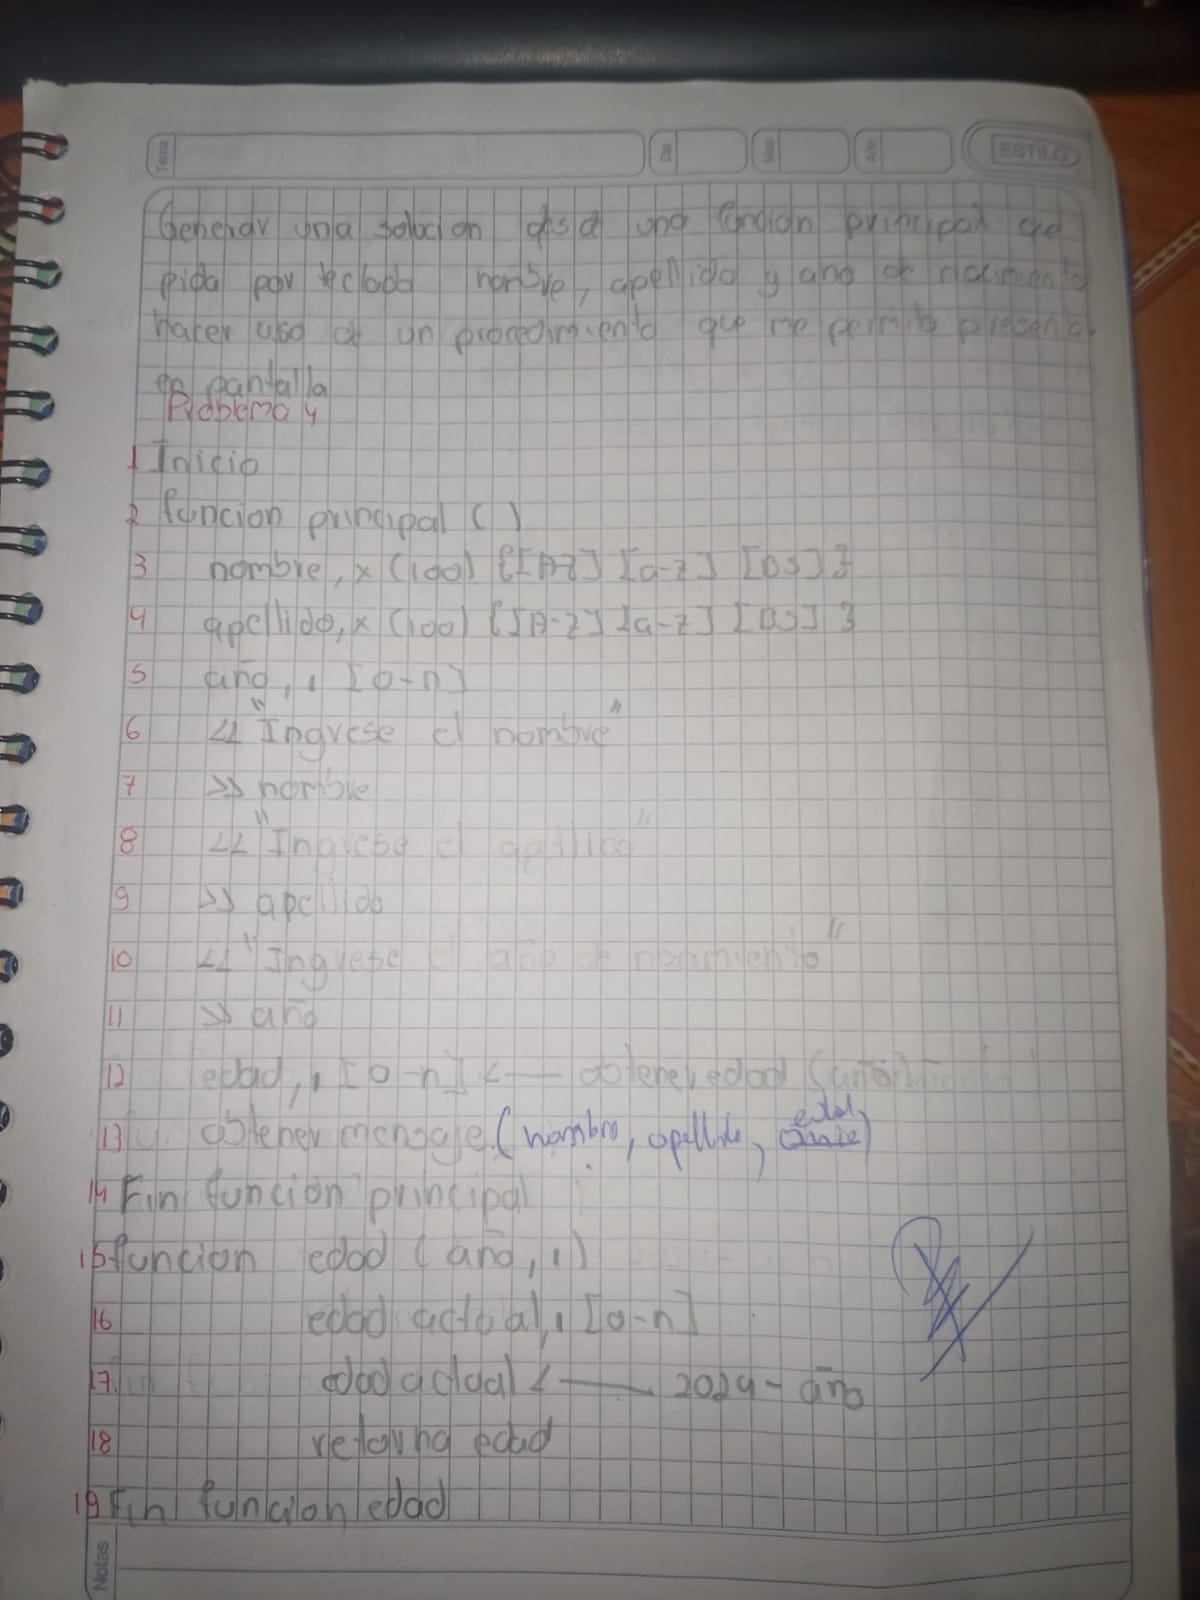 Tema
Dia
Mes
Año
ESTILO
Generar una solucion desde una funcion principal que
pida por teclado nombre, apellido y año de nacimiento
hacer uso de un procedimiento que me permita presentar
en pantalla
Problema 4
1 Inicio
2 funcion principal ( )
3 nombre, x (100) {[A-Z] [a-z] [bs] }
4 apellido, x (100) {[A-Z] [a-z] [bs] }
5 año, , [0-n]
6 << "Ingrese el nombre"
7 >> nombre
8 << "Ingrese el apellido"
9 >> apellido
10 << "Ingrese el año de nacimiento"
11 >> año
12 edad, , [0-n] <— obtener edad (año
13 obtener mensaje (nombre, apellido, edad)
14 Fin funcion principal
15 funcion edad (año, ı)
16 edad actual, ı [0-n]
17 edad actual <— 2024 - año
18 retorna edad
19 Fin funcion edad
Notas